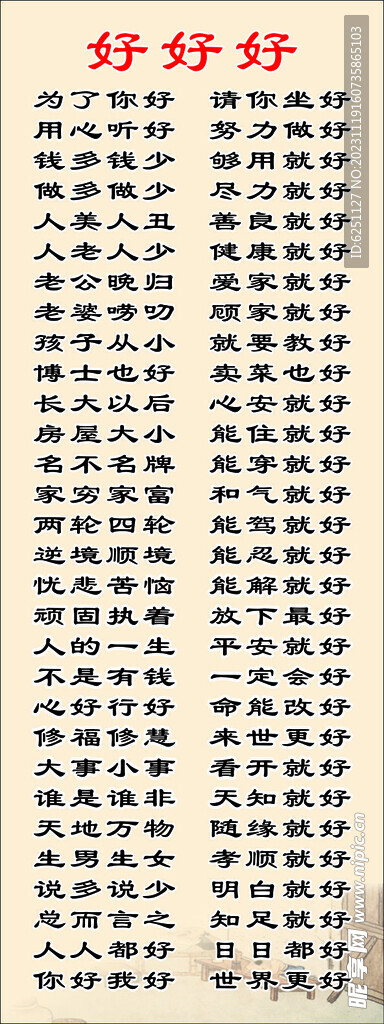 好好好
为了你好 请你坐好
用心听好 努力做好
钱多钱少 够用就好
做多做少 尽力就好
人美人丑 善良就好
人老人少 健康就好
老公晚归 爱家就好
老婆唠叨 顾家就好
孩子从小 就要教好
博士也好 卖菜也好
长大以后 心安就好
房屋大小 能住就好
名不名牌 能穿就好
家穷家富 和气就好
两轮四轮 能驾就好
逆境顺境 能忍就好
忧悲苦恼 能解就好
顽固执着 放下最好
人的一生 平安就好
不是有钱 一定会好
心好行好 命能改好
修福修慧 来世更好
大事小事 看开就好
谁是谁非 天知就好
天地万物 随缘就好
生男生女 孝顺就好
说多说少 明白就好
总而言之 知足就好
人人都好 日日都好
你好我好 世界更好
ID:6251127 NO:20231119160735865103
昵享网 www.nipic.cn